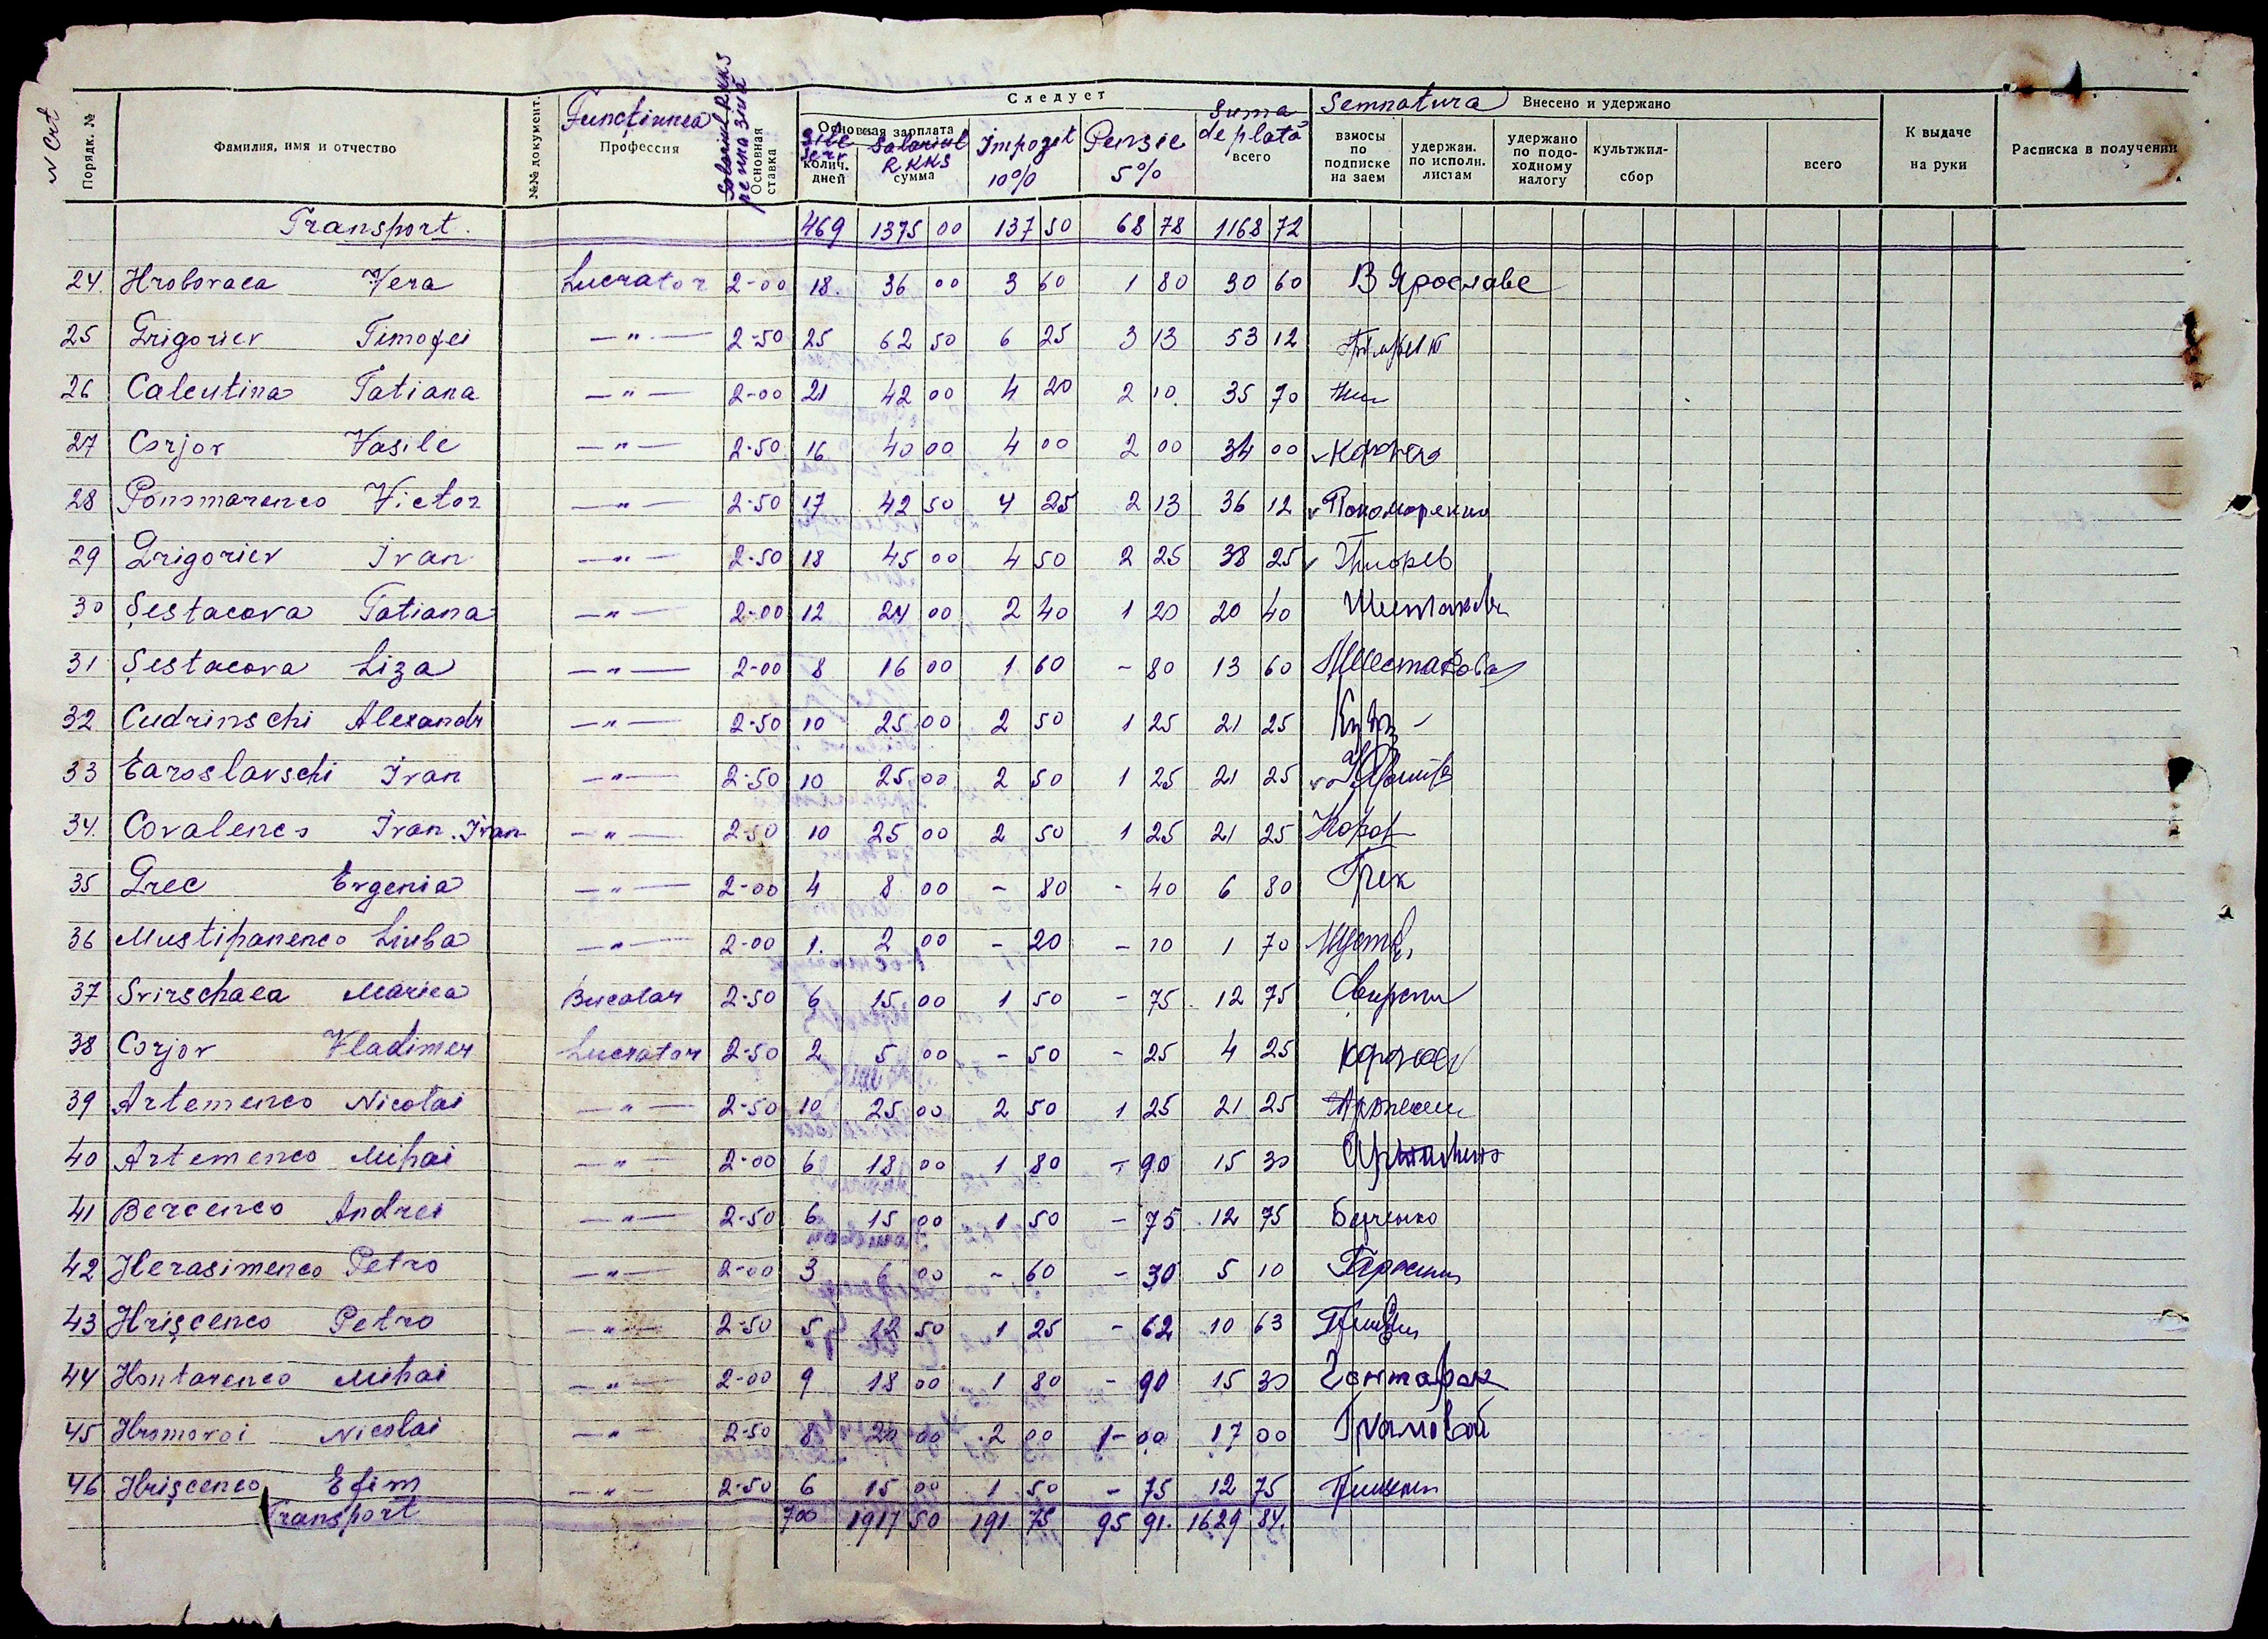 Следует
Semnatura Внесено и удержано
N Crt Порядк. № Фамилия, имя и отчество №№ документ. Functiunea Профессия Salariul RKKS pe una zi Основная ставка
Основная зарплата
Zile колич. дней Salariul RKKS сумма Impozit 10% Pensie 5% Suma de plată всего
взносы по подписке на заем удержан. по исполн. листам удержано по подоходному налогу культжилсбор всего К выдаче на руки Расписка в получении
Transport. 469 1375 00 137 50 68 78 1168 72
24. Hrobovaea Vera Lucrator 2-00 18. 36 00 3 60 1 80 30 60 В Ярославе
25 Grigoriev Timofei —"— 2-50 25 62 50 6 25 3 13 53 12
26 Caleutina Tatiana —"— 2-00 21 42 00 4 20 2 10 35 70
27 Corjov Vasile —"— 2-50 16 40 00 4 00 2 00 34 00
28 Ponomarenco Victor —"— 2-50 17 42 50 4 25 2 13 36 12 Пономоренко
29 Grigoriev Ivan —"— 2-50 18 45 00 4 50 2 25 38 25
30 Şestacova Tatiana —"— 2-00 12 24 00 2 40 1 20 20 40
31 Şestacova Liza —"— 2-00 8 16 00 1 60 - 80 13 60 Шестакова
32 Cudrinschi Alexandr —"— 2-50 10 25 00 2 50 1 25 21 25
33 Earoslavschi Ivan —"— 2-50 10 25 00 2 50 1 25 21 25
34. Covalenco Ivan. Ivan —"— 2-50 10 25 00 2 50 1 25 21 25
35 Grec Evgenia —"— 2-00 4 8 00 - 80 - 40 6 80 Грек
36 Mustipanenco Liuba —"— 2-00 1. 2 00 - 20 - 10 1 70
37 Svirschaea Mariea Bucatar 2-50 6 15 00 1 50 - 75 12 75
38 Corjov Vladimer Lucrator 2-50 2 5 00 - 50 - 25 4 25
39 Artemenco Nicolai —"— 2-50 10 25 00 2 50 1 25 21 25
40 Artemenco Mihai —"— 2-00 6 18 00 1 80 - 90 15 30
41 Bercenco Andrei —"— 2-50 6 15 00 1 50 - 75 12 75 Берченко
42 Herasimenco Petro —"— 2-00 3 6 00 - 60 - 30 5 10
43 Hrişcenco Petro —"— 2-50 5 12 50 1 25 - 62 10 63
44 Hontarenco Mihai —"— 2-00 9 18 00 1 80 - 90 15 30
45 Hromovoi Nicolai —"— 2-50 8 20 00 2 00 1-00 17 00
46 Hrişcenco Efim —"— 2-50 6 15 00 1 50 - 75 12 75
Transport 700 1917 50 191 75 95 91. 1629 84.